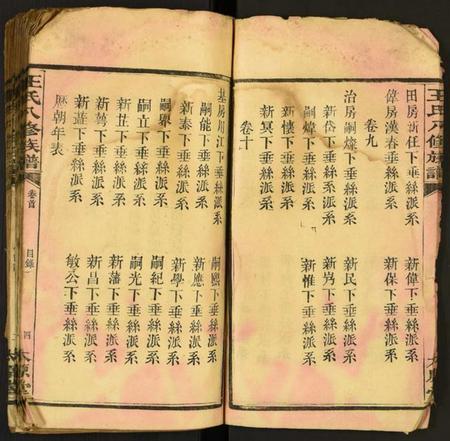 王氏八修族譜
田房新任下垂絲派系
新偉下垂絲派系
偉房漢春下垂絲派系
新保下垂絲派系
卷九
治房嗣燦下垂絲派系
新民下垂絲派系
新岱下垂絲派系
新岃下垂絲派系
嗣煒下垂絲派系
新惟下垂絲派系
新懷下垂絲派系
新冥下垂絲派系
卷十
基房用江下垂絲派系
嗣熙下垂絲派系
嗣能下垂絲派系
新應下垂絲派系
新泰下垂絲派系
新學下垂絲派系
嗣界下垂絲派系
嗣紀下垂絲派系
嗣立下垂絲派系
嗣光下垂絲派系
新芷下垂絲派系
新藩下垂絲派系
新蒭下垂絲派系
新昌下垂絲派系
新遊下垂絲派系
敏公下垂絲派系
歷朝年表
王氏八修族譜
卷首
目錄
四
太原堂